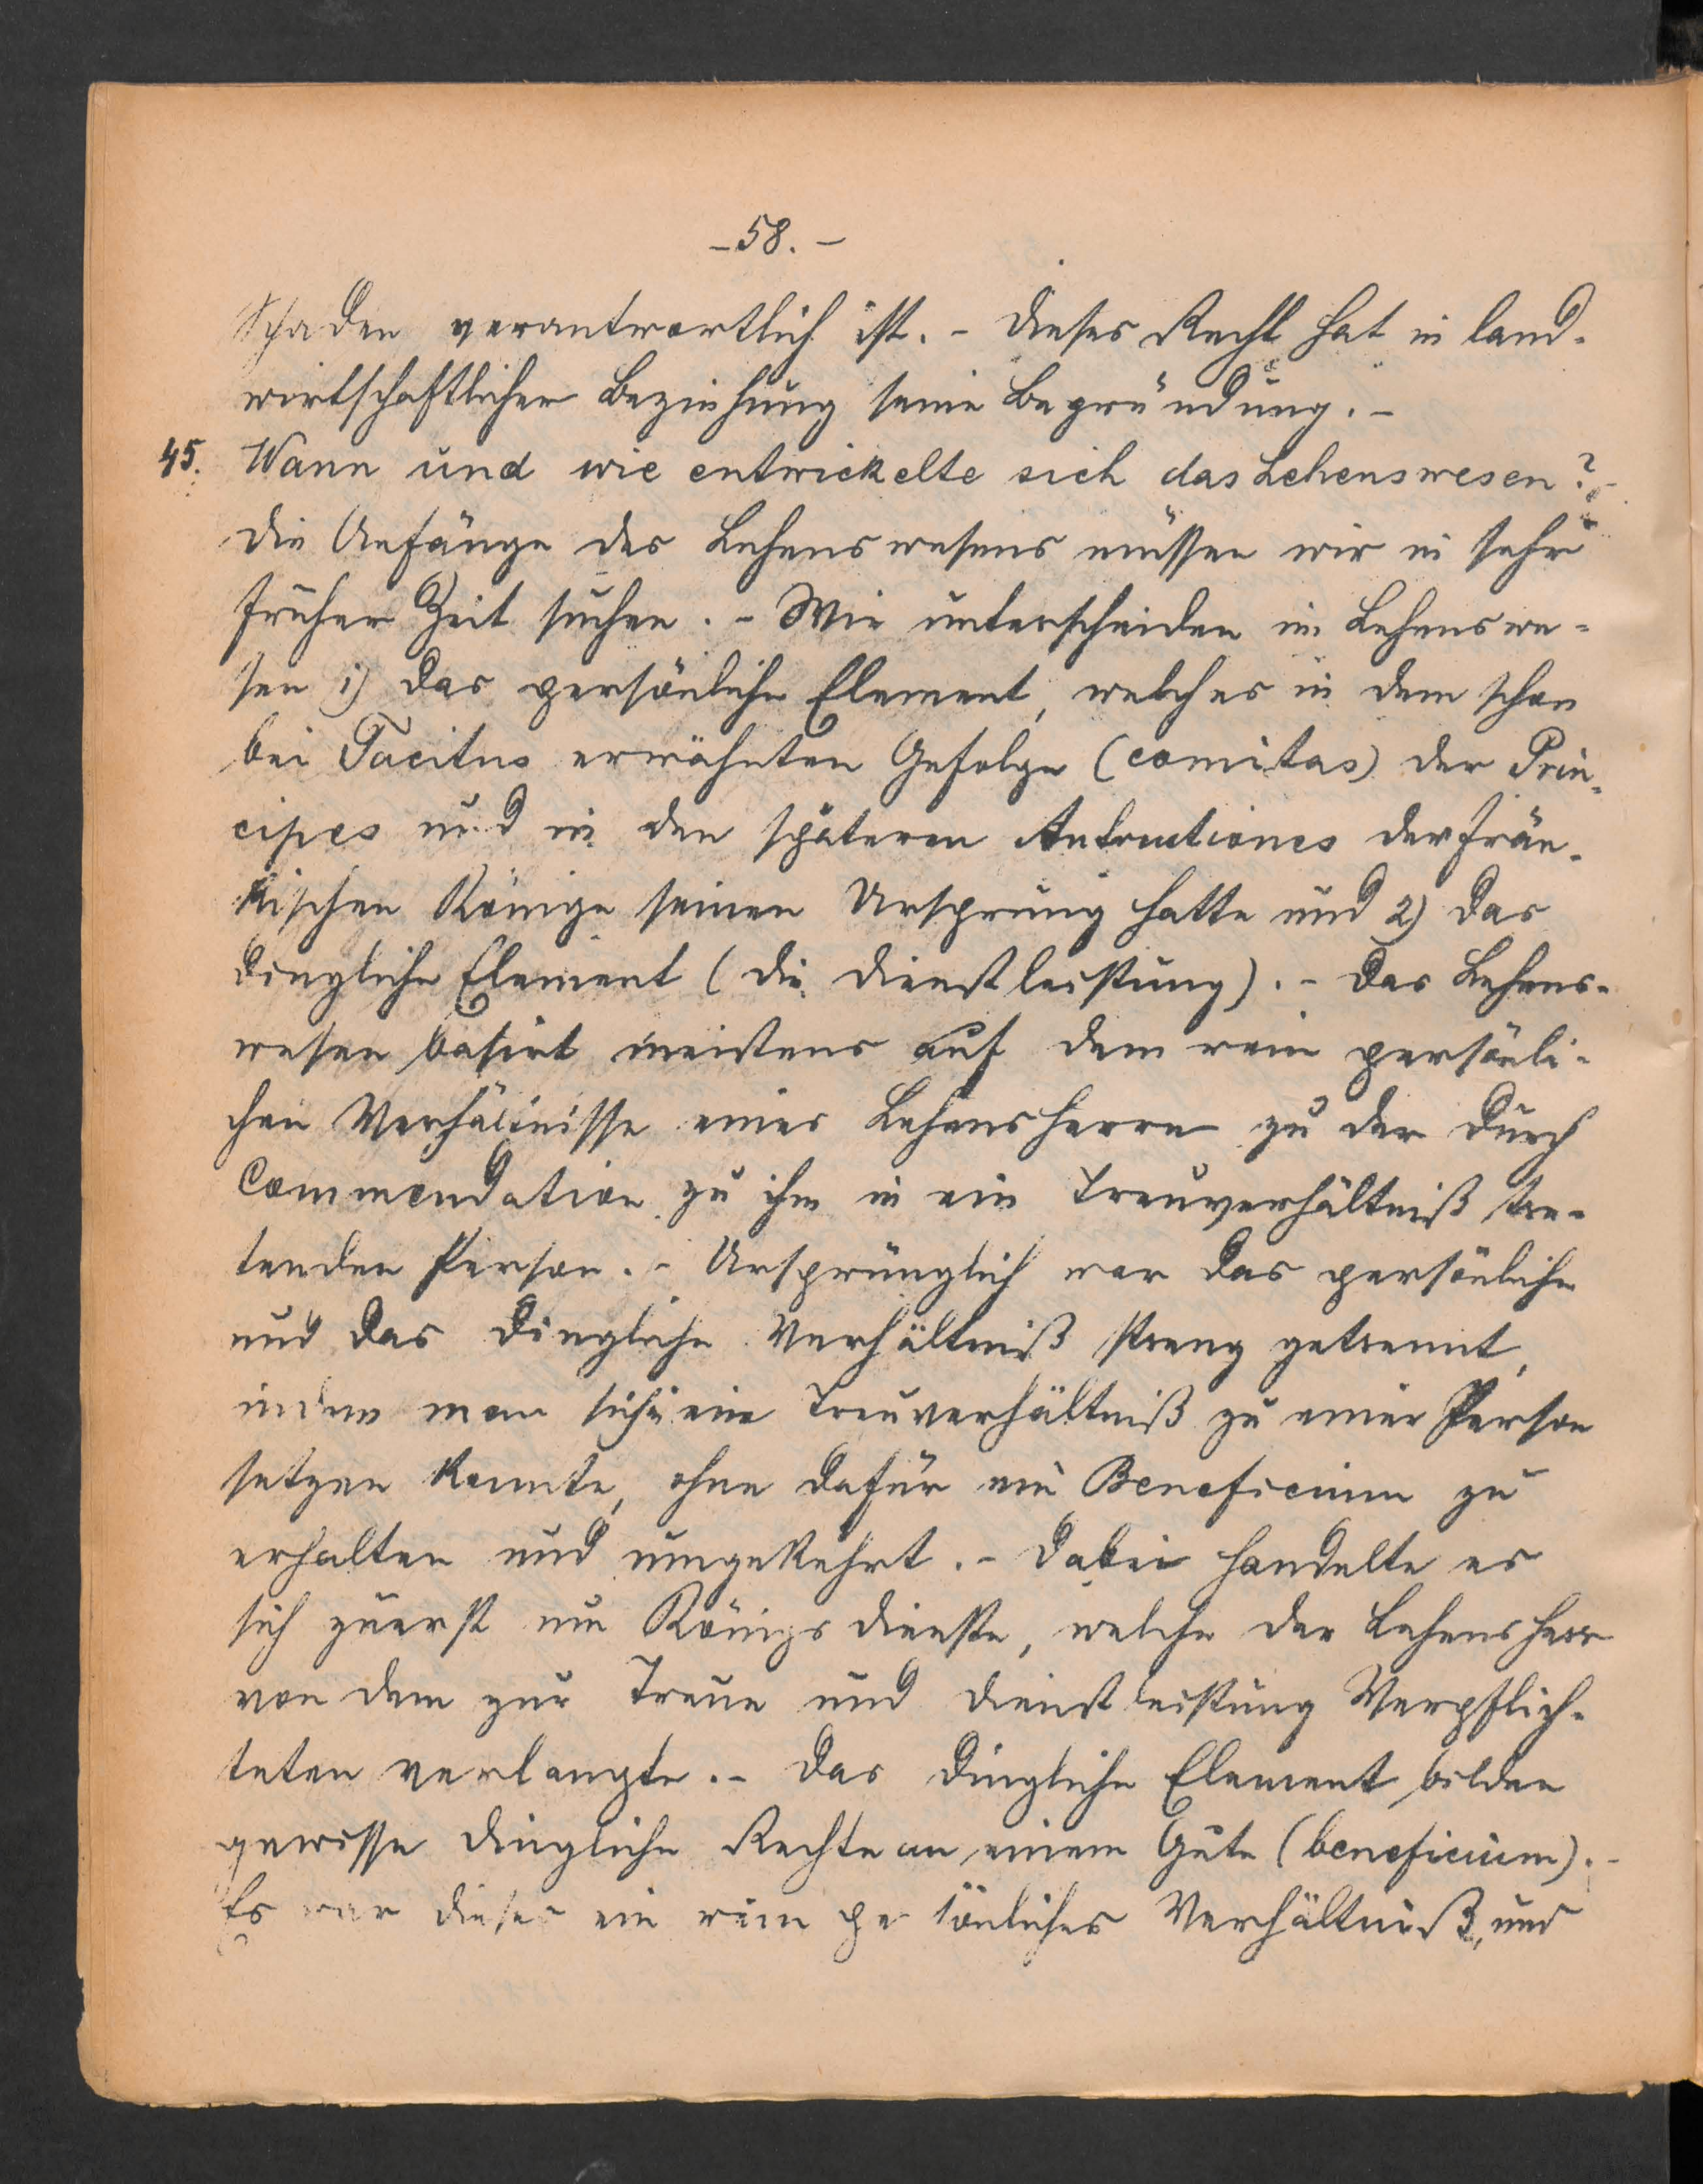 - 58. -
Schaden verantwortlich ist. - Dieses Recht hat in land-
wirtschaftlicher Beziehung seine Begründung. -
45. Wann und wie entwickelte sich das Lehenswesen? -
Die Anfänge des Lehenswesens müssen wir in sehr
früher Zeit suchen. - Wir unterscheiden im Lehenswe-
sen 1) das persönliche Element, welches in dem schon
bei Tacitus erwähnten Gefolge (comitas) der Prin-
cipes und in den späteren Antrutiones der frän-
kischen Könige seinen Ursprung hatte und 2) das
dingliche Element (die Dienstleistung). - Das Lehens-
wesen basirt meistens auf dem rein persönli-
chen Verhältnisse eines Lehensherrn zu der durch
Commendation zu ihm in ein Treuverhältniß tre-
tenden Person. - Ursprünglich war das persönliche
und das dingliche Verhältniß streng getrennt,
indem man sich in ein Treuverhältniß zu einer Person
setzen konnte, ohne dafür ein Beneficium zu
erhalten und umgekehrt. - Dabei handelte es
sich zuerst um Königsdienste, welche der Lehensherr
von dem zur Treue und Dienstleistung Verpflich-
teten verlangte. - Das dingliche Element bilden
gewisse dingliche Rechte an einem Gute (beneficium). -
Es war dieses ein rein persönliches Verhältniß, und